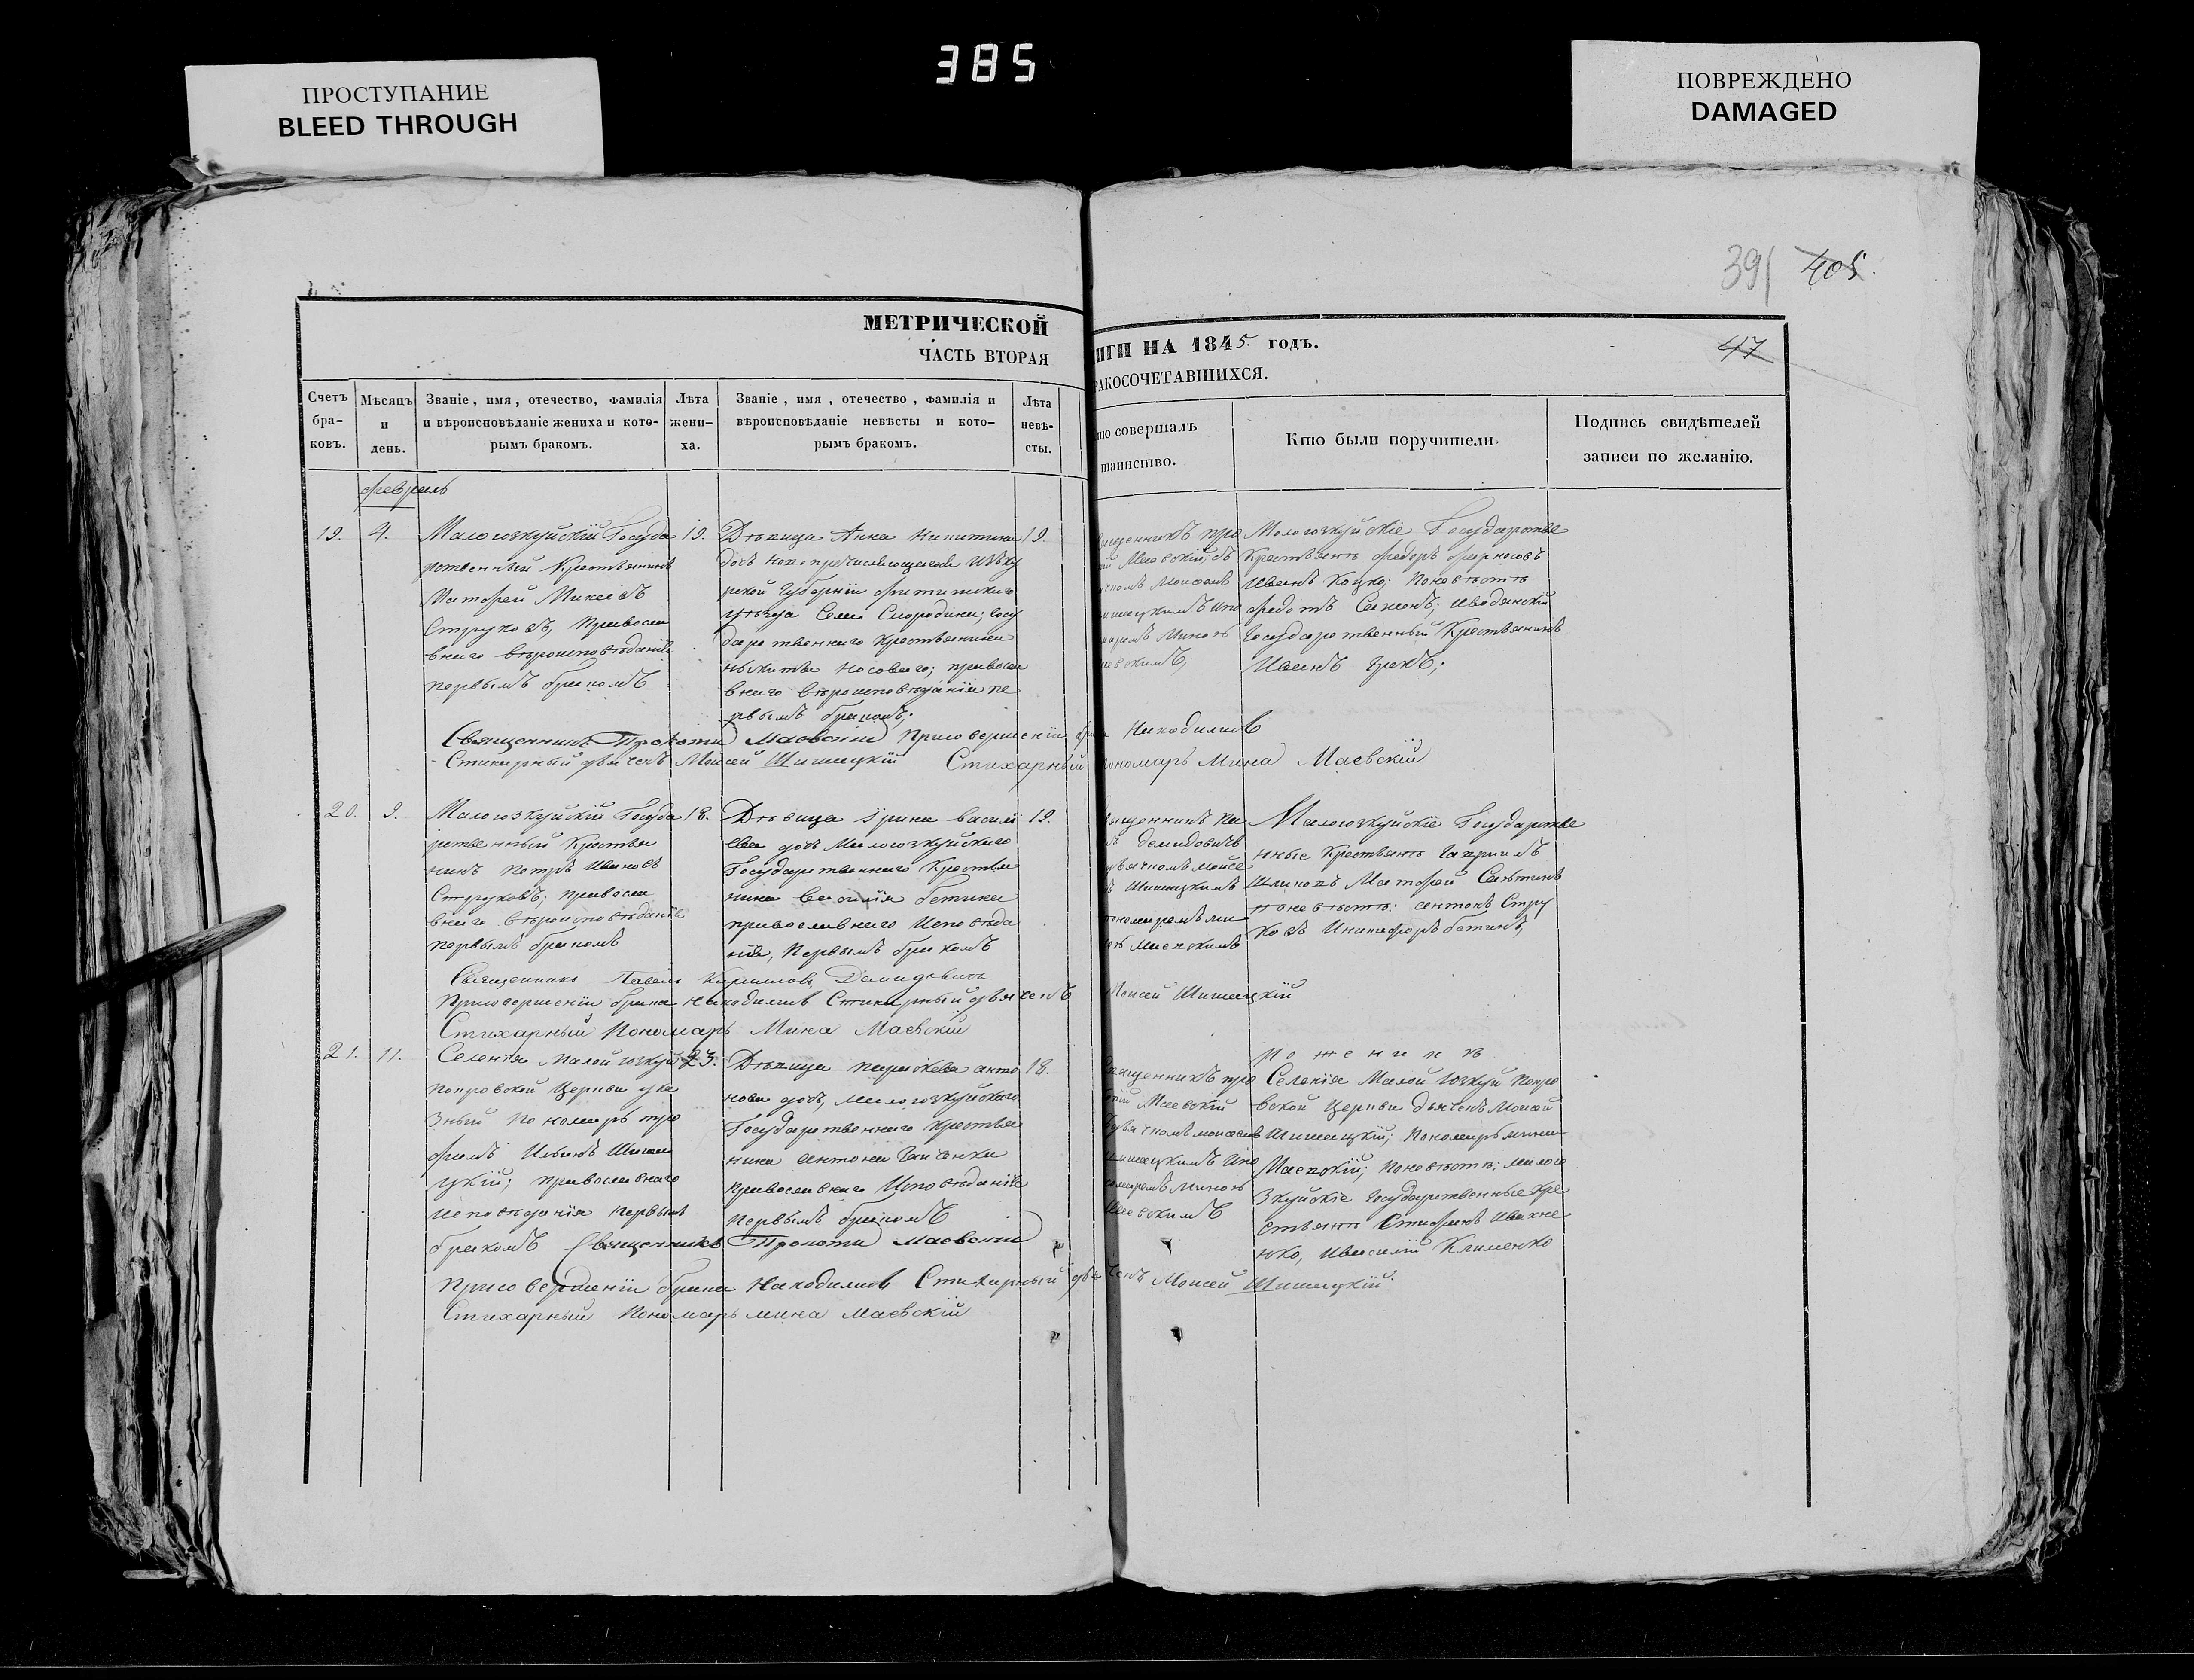 385
ПРОСТУПАНИЕ
BLEED THROUGH
ПОВРЕЖДЕНО
DAMAGED
391 405.
МЕТРИЧЕСКОЙ
ЧАСТЬ ВТОРАЯ
ИГИ НА 1845. годъ.
47
РАКОСОЧЕТАВШИХСЯ.
Счетъ бра-ковъ.
Мѣсяцъ и день.
Званіе, имя, отечество, фамилія и вѣроисповѣданіе жениха и кото-рымъ бракомъ.
Лѣта жени-ха.
Званіе, имя, отечество, фамилія и вѣроисповѣданіе невѣсты и кото-рымъ бракомъ.
Лѣта невѣ-сты.
то совершалъ
таинство.
Кто были поручители.
Подпись свидѣтелей
записи по желанію.
февраль
19. 4.
Малогозкуйскій Госуда
рственный Крестьянинъ
Матфей Микеевъ
Струковъ, Правосла
внаго вѣроисповѣданія
первымъ бракомъ
19.
Дѣвица Анна Никитина
дочь
рской Губерніи
уѣзда Села Смородина; госу
дарственнаго крестьянина
Никиты Носоваго; правосла
внаго вѣроисповѣданія пе
рвымъ бракомъ;
19.
ященникъ про
й Маевскій; съ
чкомъ Моисеем
ишацкимъ ипо
омаремъ Миною
аевскимъ;
Малогозкуйскіе Государстве
Крестьянъ Федоръ
Иванъ Коцко; по невѣстѣ
Федотъ Иводянскій
Государственный Крестьянинъ
Иванъ
Священникъ Прокопій Маевскій При совершеніи бра Находились
Стихарный дьячекъ Моисей Шишацкій Стихарный пономарь Мина Маевскій
20. 9.
Малогозкуйскій Госуда
рственный Крестья
нинъ Петръ Ивановъ
Струковъ, правосла
внаго вѣроисповѣданія
первымъ бракомъ
18.
Дѣвица Ірина Василі
ева дочь Малогозкуйскаго
Государственнаго Крестья
нина Василія Бетина
православнаго Исповѣда
нія, Первымъ бракомъ
19.
ященникъ Па
ъ Демидовичъ
дьячкомъ Мойсе
ъ Шишацкимъ
пономаремъ ми
ою Маевскимъ
Малогозкуйскіе Государстве
нные Крестьянъ Гавриилъ
Матфей
по невѣстѣ: Антонъ Стру
ковъ Бетинъ;
Священникъ Павелъ Кириловъ Демидовичъ
При совершеніи брака находились Стихарный дьячекъ Моисей Шишацкій
Стихарный Пономарь Мина Маевскій
21. 11.
Селенія Малой гозкуй
покровской Церкви ука
зный Пономарь тро
фимъ Шиша
цкій; православнаго
исповѣданія первым
бракомъ
23.
Дѣвица параскева анто
нова дочь, Малогозкуйскаго
Государственнаго крестья
нина Антона
православнаго Исповѣданія
первымъ бракомъ
18.
вященникъ про
опій Маевскій
дьячкомъ моисеем
шишацкимъ ипо
номаремъ Миною
Маевскимъ
По женихѣ
Селенія Малой Гозкуй покро
вской Церкви дьячекъ Моисей
Шишацкій; Пономарь мина
Маевскій; по невѣстѣ; малого
зкуйскіе государственные кре
стьянъ Стефанъ
нко, Ивасилій Клименко
Священникъ Прокопій Маевскій
При совершеніи брака Находились Стихарный дьячекъ Моисей Шишацкій
Стихарный Пономарь мина Маевскій